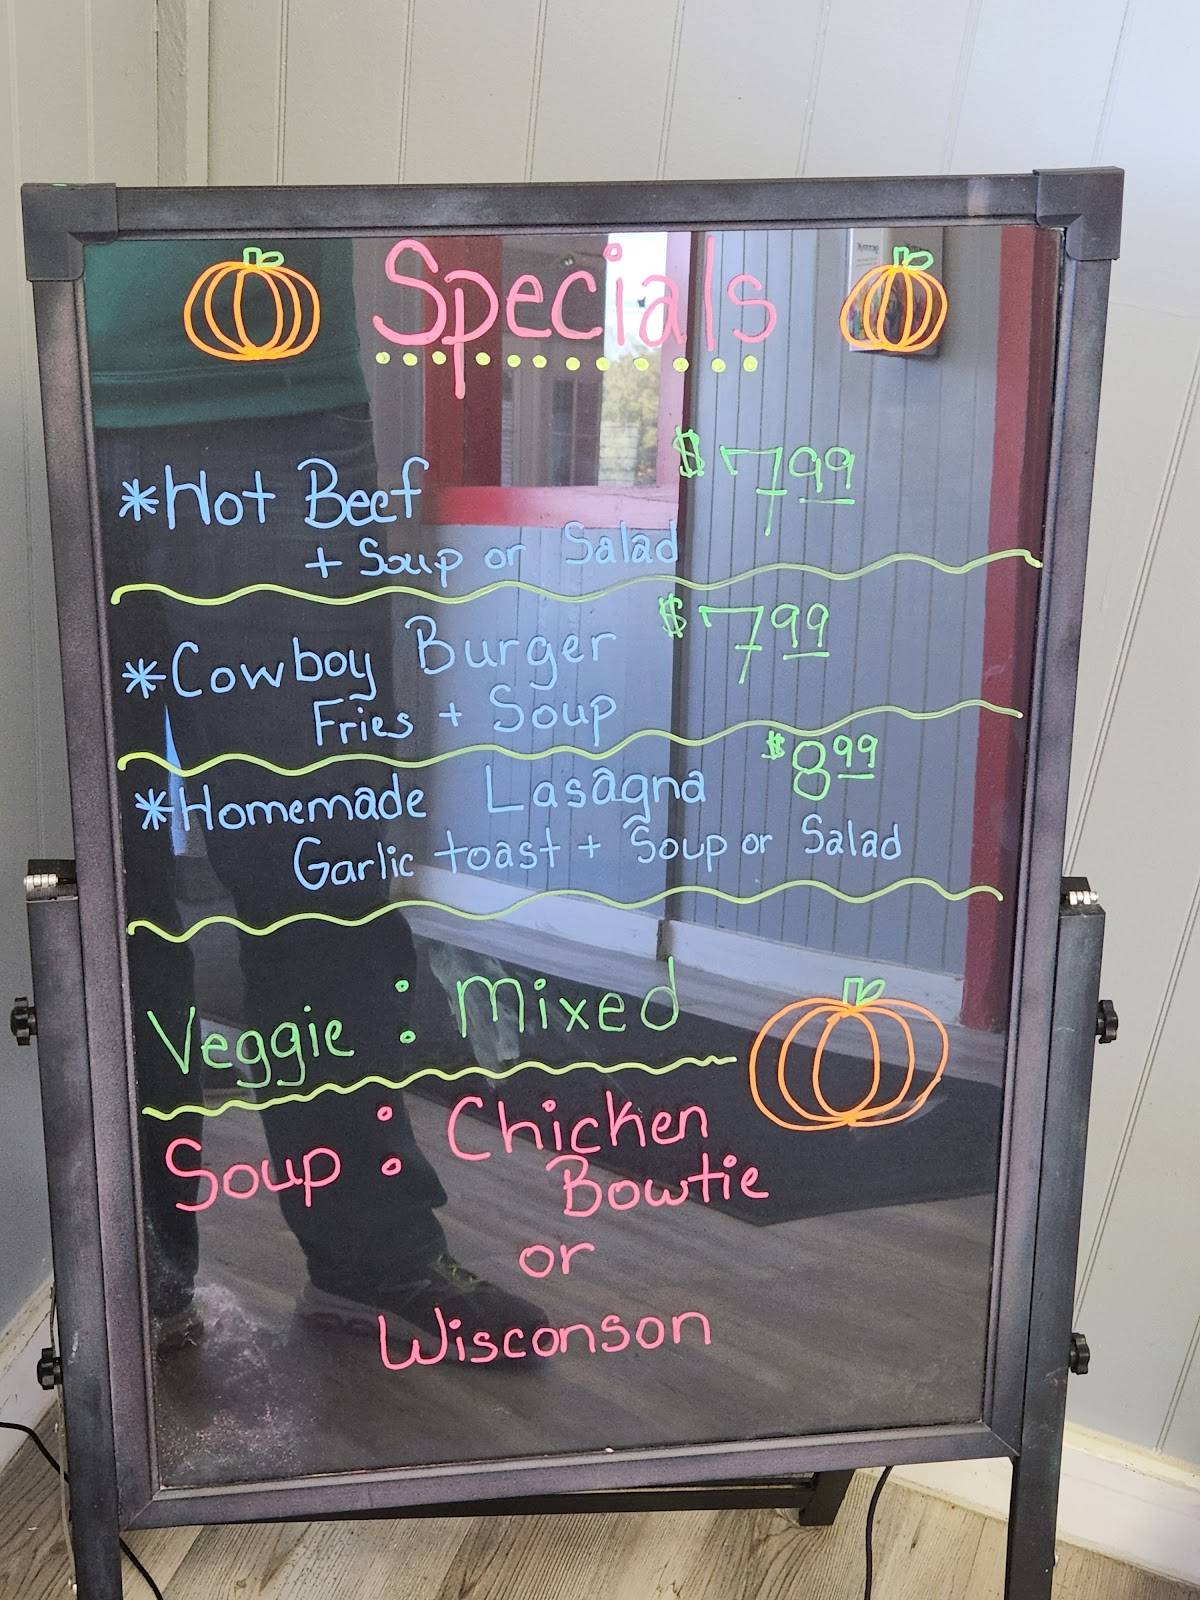 Specials
*Hot Beef $7.99
+ Soup or Salad
*Cowboy Burger $7.99
Fries + Soup
*Homemade Lasagna $8.99
Garlic toast + Soup or Salad
Veggie: Mixed
Soup: Chicken
Bowtie
or
Wisconson